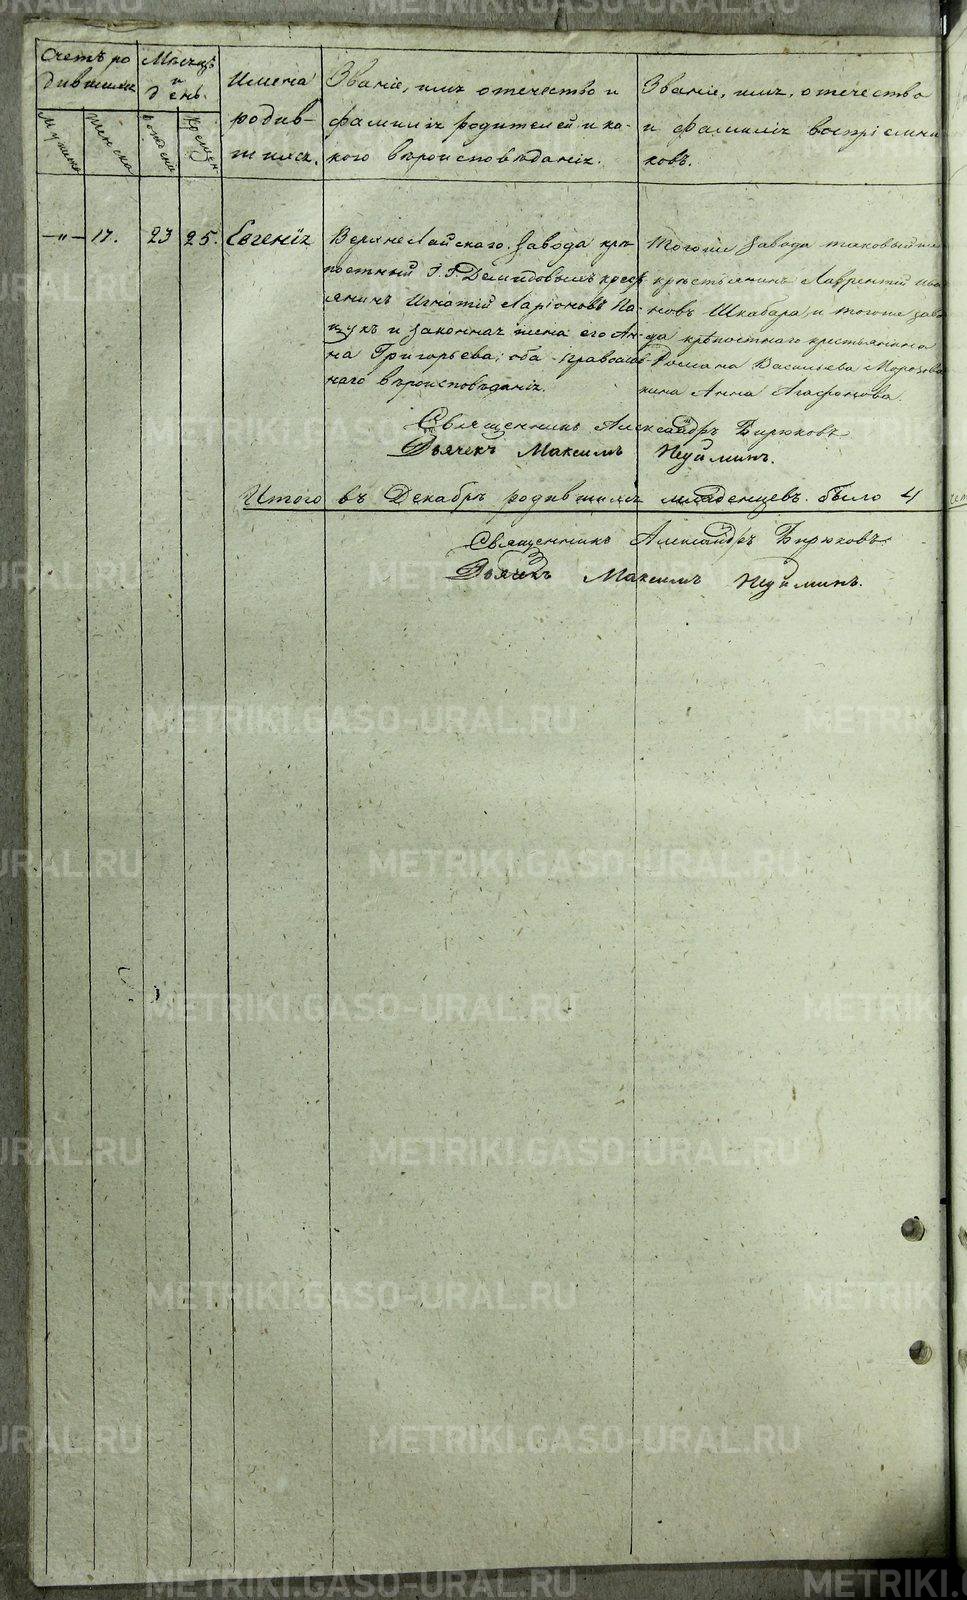 Счетъ ро
дившихся
Мѣсяцъ
и
день.
Имена
родив-
шихся.
Званіе, имя отечество и
фамилія родителей и ка-
кого вѣроисповѣданія.
Званіе, имя, отечество
и фамилія воспріемни
ковъ.
женска
рожденія
крещен
—„— 17. 23 25. Евгенія
ВерхнеЛайскаго завода крѣ
постный Г.Г. Демидовымъ крест
янинъ Игнатій Ларіоновъ
и законная жена его Ан-
на Григорьева; оба православ-
наго вѣроисповѣданія.
Тогоже завода таковый же
крестьянинъ Лаврентій Ива
новъ Шкабара, и тогоже заво
да крѣпостнаго крестьянина
Романа Васильева Морозова
жина Анна Агафонова.
Священникъ Александръ Бирюковъ
Дьячекъ Максимъ Неуйминъ.
Итого въ Декабрѣ родившихся младенцевъ было 4
Священникъ Александръ Бирюковъ
Дьячекъ Максимъ Неуйминъ.
METRIKI.GASO-URAL.RU